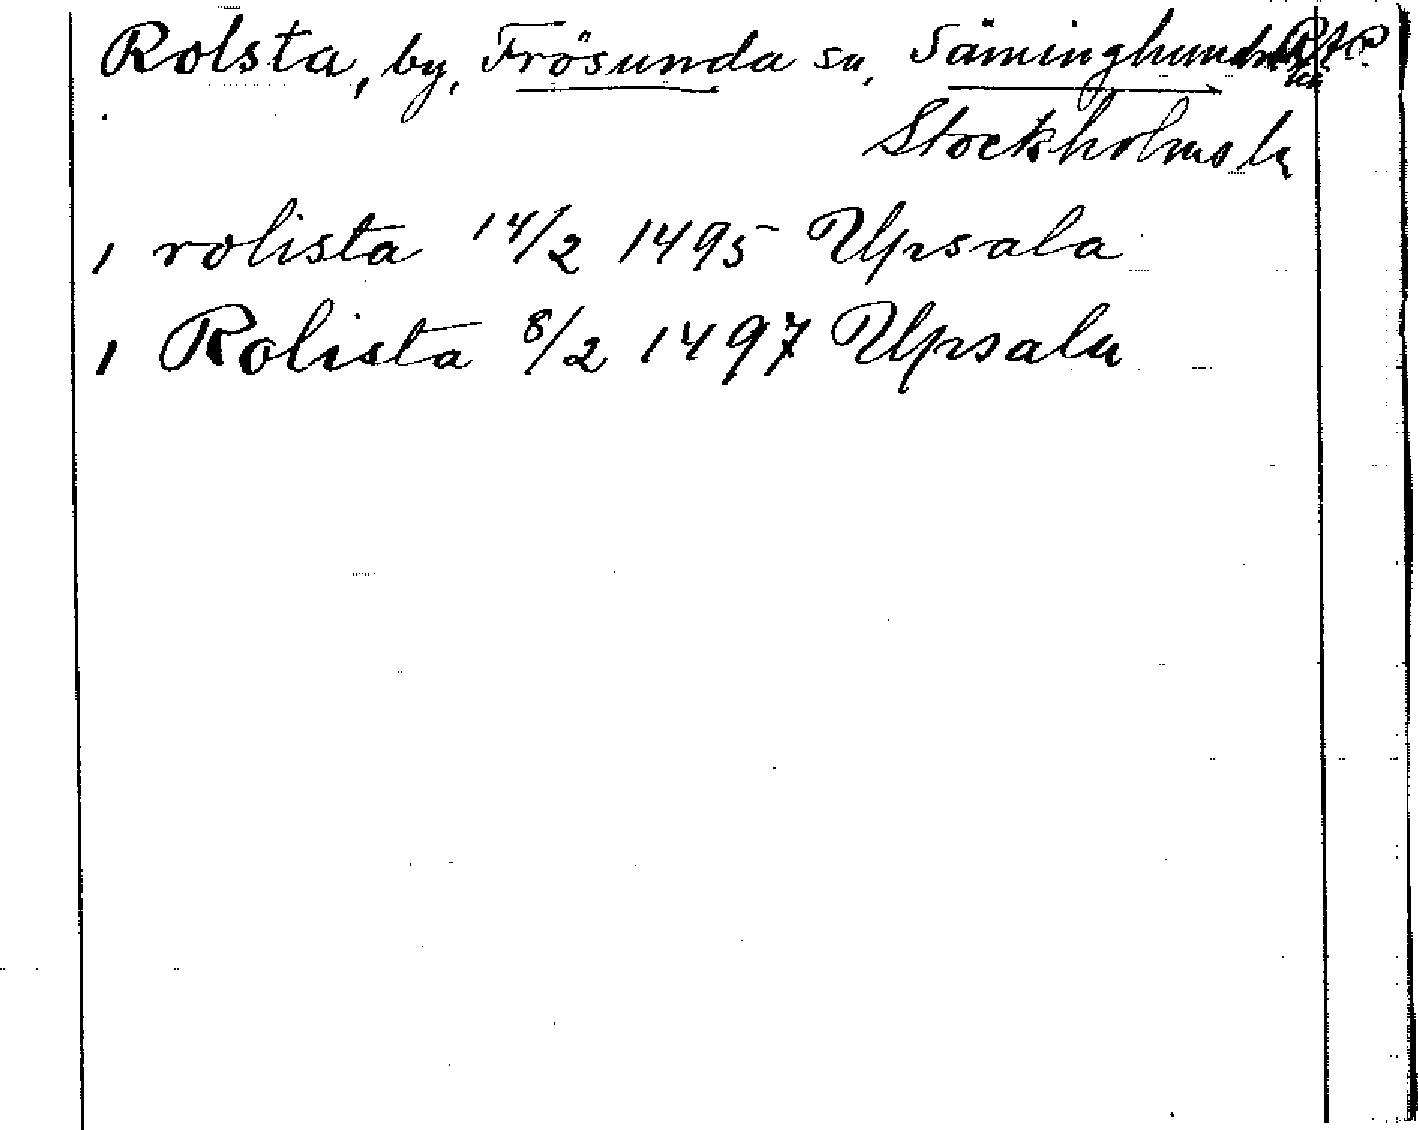 Rolsta, by, Frösunda sn, Säminghundra
Stockholms l
, rolista 14/2 1495 Upsala
, Rolista 8/2 1497 Upsala